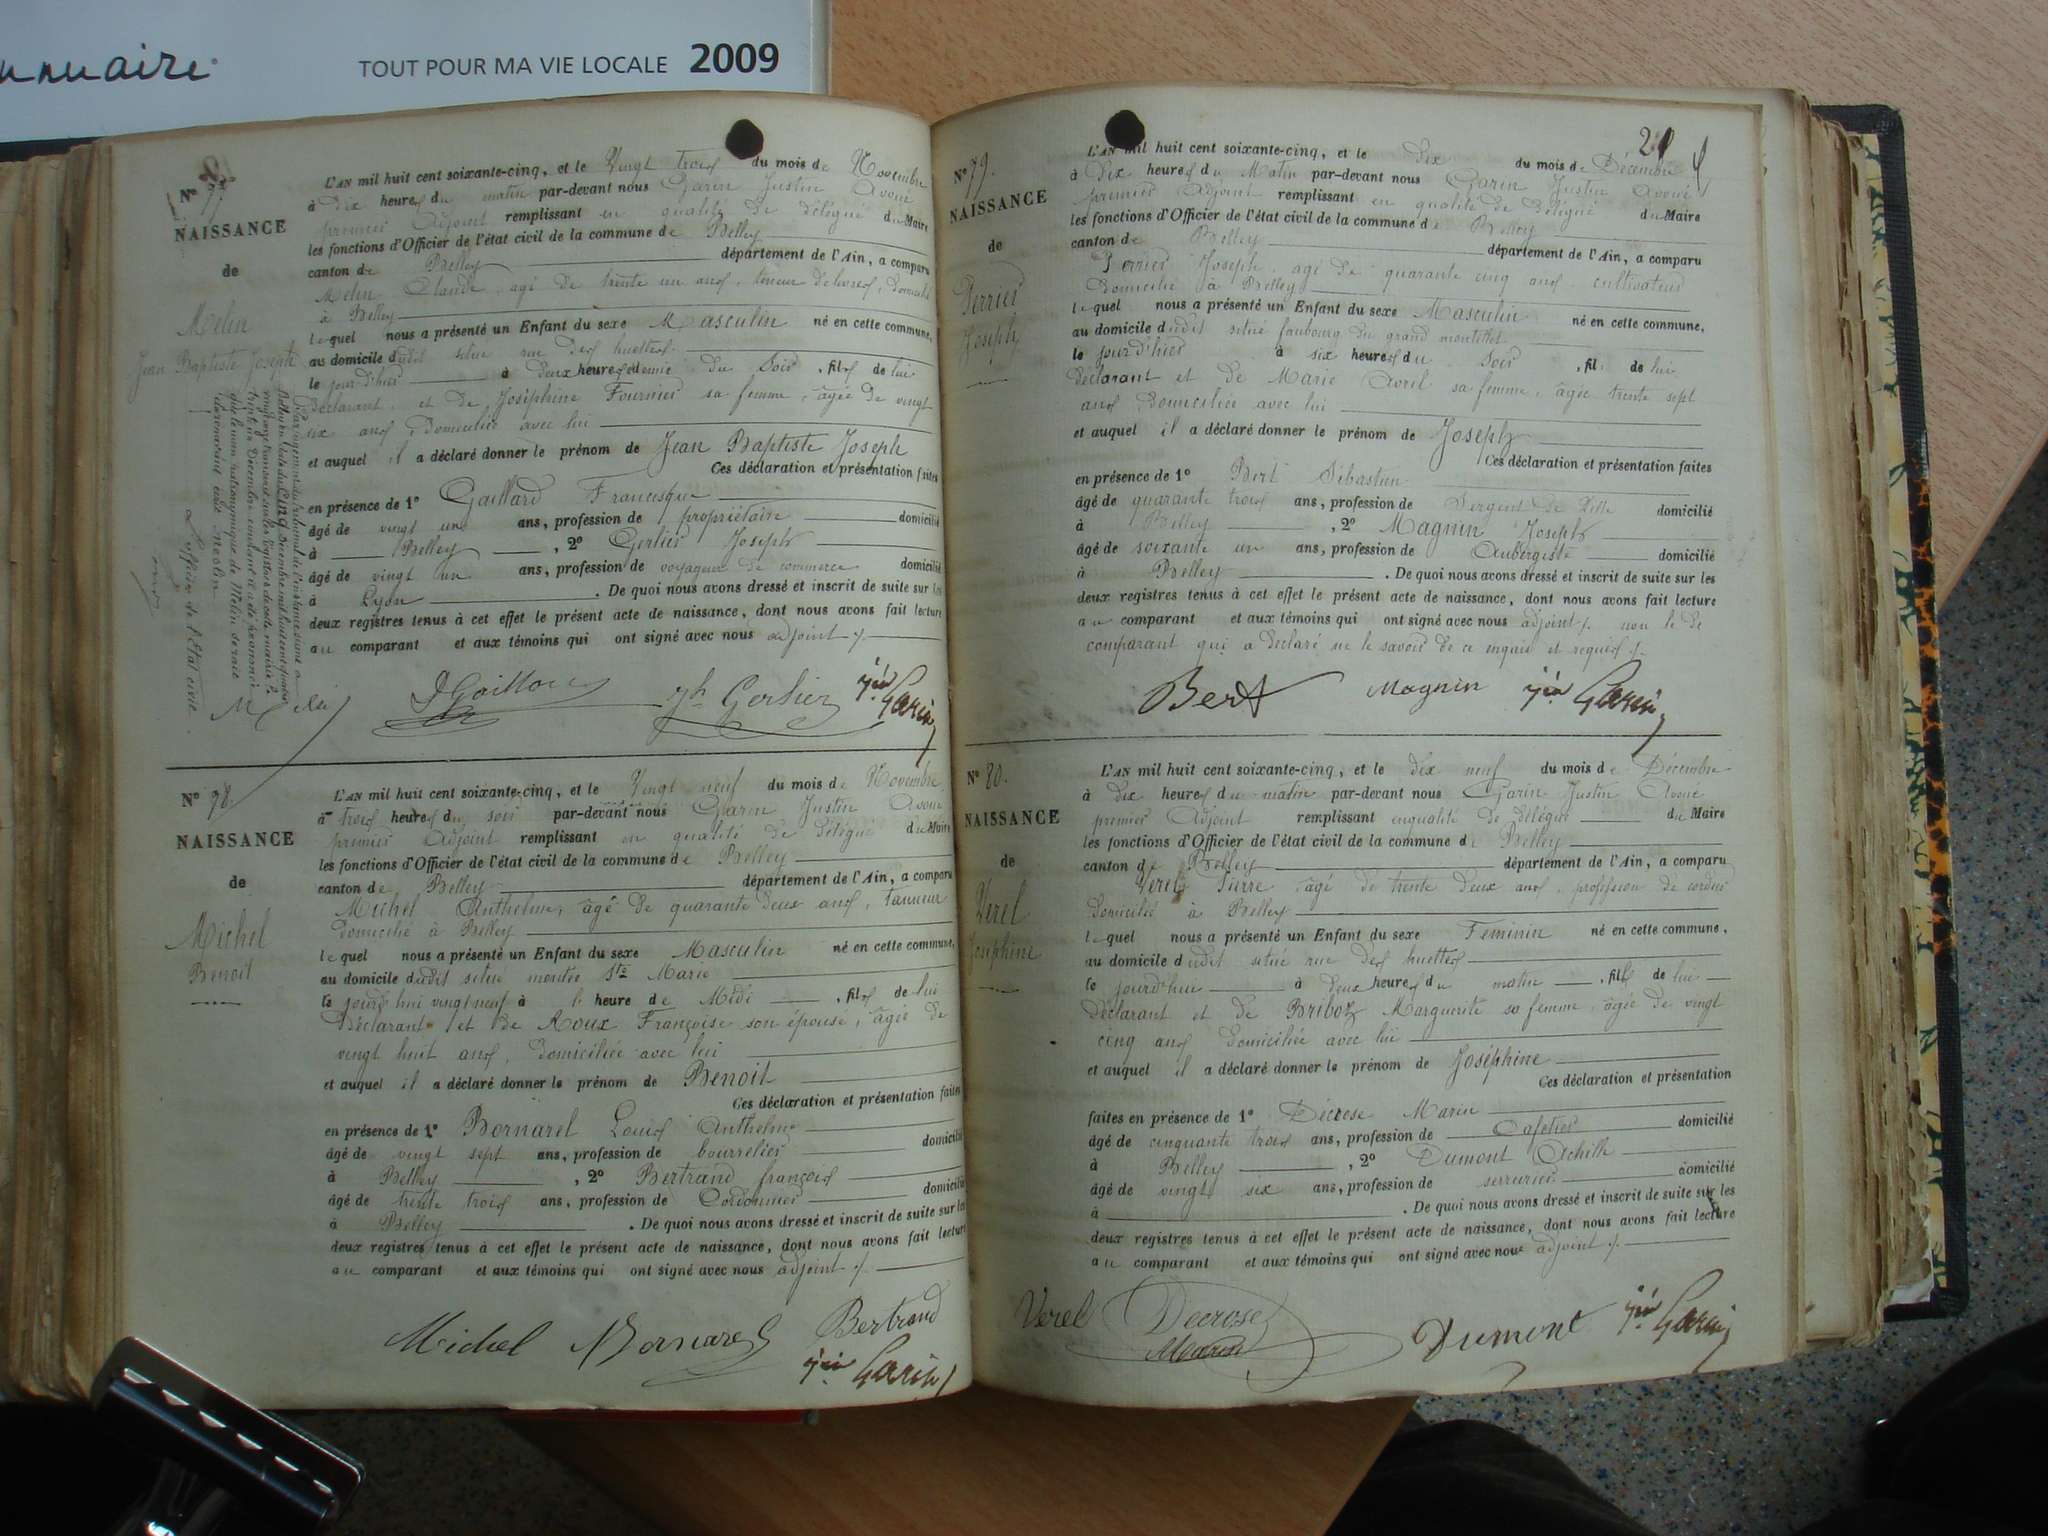 nnuaire
TOUT POUR MA VIE LOCALE 2009
N° 77
NAISSANCE
de
Melin
Jean Baptiste Joseph
L'officier de l'Etat civil
L'AN mil huit cent soixante-cinq, et le Vingt trois du mois de Novembre
à dix heures du matin par-devant nous Garin Justin Avoué
premier Adjoint remplissant en qualité de délégué du Maire
les fonctions d'Officier de l'état civil de la commune de Belley
canton de Belley département de l'Ain, a comparu
Melin Claude, agé de trente un ans, teneur de livres, domicilié
à Belley
lequel nous a présenté un Enfant du sexe Masculin né en cette commune,
au domicile dudit situé rue des huettes
le jour d'hier à deux heures et demie du Soir, fils de lui
déclarant, et de Joséphine Fournier sa femme, âgée de vingt
six ans, domiciliée avec lui
et auquel il a déclaré donner le prénom de Jean Baptiste Joseph
Ces déclaration et présentation faites
en présence de 1° Gaillard Francisque
âgé de vingt un ans, profession de propriétaire domicilié
à Belley, 2° Gerlier Joseph
âgé de vingt un ans, profession de voyageur de commerce domicilié
à Lyon . De quoi nous avons dressé et inscrit de suite sur les
deux registres tenus à cet effet le présent acte de naissance, dont nous avons fait lecture
au comparant et aux témoins qui ont signé avec nous adjoint
Melin Gaillard Jh Gerlier Jin Garin
N° 78
NAISSANCE
de
Michel
Benoit
L'AN mil huit cent soixante-cinq, et le Vingt neuf du mois de Novembre
à trois heures du soir par-devant nous Garin Justin Avoué
premier Adjoint remplissant en qualité de délégué du Maire
les fonctions d'Officier de l'état civil de la commune de Belley
canton de Belley département de l'Ain, a comparu
Michel Anthelme, âgé de quarante deux ans, tanneur
domicilié à Belley
lequel nous a présenté un Enfant du sexe Masculin né en cette commune,
au domicile dudit situé montée Ste Marie
le jourd'hui vingt neuf à l' heure de Midi, fils de lui
Déclarant et de Roux Françoise son épouse, âgée de
vingt huit ans, domiciliée avec lui
et auquel il a déclaré donner le prénom de Benoit
Ces déclaration et présentation faites
en présence de 1° Bornarel Louis Anthelme
âgé de vingt sept ans, profession de bourrelier domicilié
à Belley, 2° Bertrand françois
âgé de trente trois ans, profession de Cordonnier domicilié
à Belley . De quoi nous avons dressé et inscrit de suite sur les
deux registres tenus à cet effet le présent acte de naissance, dont nous avons fait lecture
au comparant et aux témoins qui ont signé avec nous adjoint
Michel Bornarel Bertrand
Jin Garin
N° 79.
NAISSANCE
de
Perrier
Joseph
L'AN mil huit cent soixante-cinq, et le dix du mois de Décembre
à Dix heures du Matin par-devant nous Garin Justin Avoué
premier Adjoint remplissant en qualité de Délégué du Maire
les fonctions d'Officier de l'état civil de la commune de Belley
canton de Belley département de l'Ain, a comparu
Perrier Joseph agé de quarante cinq ans cultivateur
Domicilié à Belley
lequel nous a présenté un Enfant du sexe Masculin né en cette commune,
au domicile dudit situé faubourg du grand
le jour d'hier à six heures du Soir, fils de lui
déclarant et de Marie Avril sa femme, âgée trente sept
ans, domiciliée avec lui
et auquel il a déclaré donner le prénom de Joseph
Ces déclaration et présentation faites
en présence de 1° Bert Sébastien
âgé de quarante trois ans, profession de Sergent de Ville domicilié
à Belley, 2° Magnin Joseph
âgé de soixante un ans, profession de Aubergiste domicilié
à Belley . De quoi nous avons dressé et inscrit de suite sur les
deux registres tenus à cet effet le présent acte de naissance, dont nous avons fait lecture
au comparant et aux témoins qui ont signé avec nous adjoint non le de
comparant qui a déclaré ne le savoir de ce enquis et requis
Bert Magnin Jin Garin
N° 80.
NAISSANCE
de
Verel
Joséphine
L'AN mil huit cent soixante-cinq, et le dix neuf du mois de Décembre
à Dix heures du matin par-devant nous Garin Justin Avoué
premier Adjoint remplissant en qualité de délégué du Maire
les fonctions d'Officier de l'état civil de la commune de Belley
canton de Belley département de l'Ain, a comparu
Verel Pierre agé de trente deux ans, profession de
domicilié à Belley
lequel nous a présenté un Enfant du sexe Feminin né en cette commune,
au domicile dudit situé rue des huettes
le jourd'hui à deux heures du matin, fille de lui
déclarant et de Briboz Marguerite sa femme, âgée de vingt
cinq ans domiciliée avec lui
et auquel il a déclaré donner le prénom de Joséphine
Ces déclaration et présentation
faites en présence de 1° Décrose Marin
âgé de cinquante trois ans, profession de Cafetier domicilié
à Belley, 2° Dumont Achille
âgé de vingt six ans, profession de serrurier domicilié
à . De quoi nous avons dressé et inscrit de suite sur les
deux registres tenus à cet effet le présent acte de naissance, dont nous avons fait lecture
au comparant et aux témoins qui ont signé avec nous adjoint
Verel Decrose Marin Dumont Jin Garin